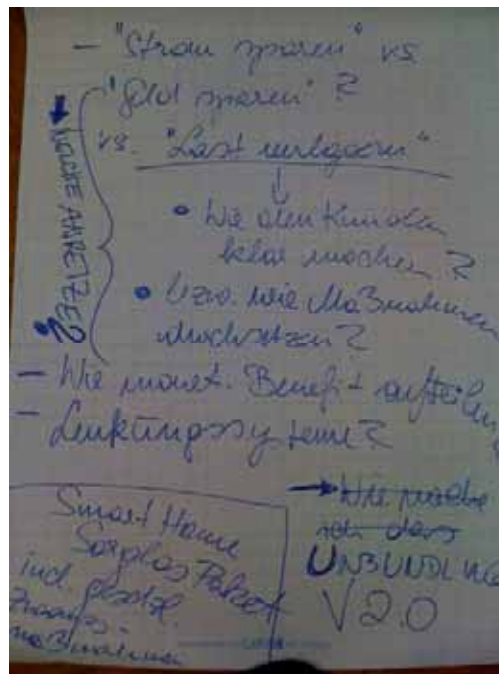 - "Strom sparen" vs
"Geld sparen" ?
vs. "Last verlagern"
→ WELCHE ANREIZE?
• Wie den Kunden
klar machen ?
• bzw. wie Maßnahmen
durchsetzen ?
- Wie monet. Benefit aufteilen
- Lenkungssysteme ?
Smart Home
Sorglos Paket
incl. gesetzl.
Zwangs-
maßnahmen
→ Wie mache
ich das
UNBUNDLING
V2.0